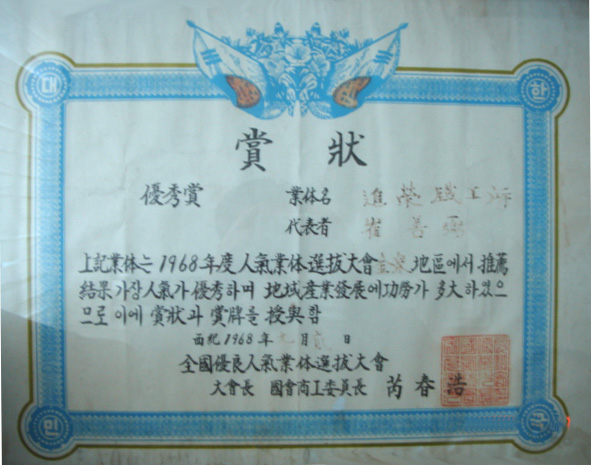 대 한
賞狀
優秀賞 業体名 進榮
代表者 崔善
上記業体는 1968年度人氣業体選拔大會 地區에서 推薦
結果가장人氣가 優秀하며 地域産業發展에功勞가 多大하였으
므로 이에 賞狀과 賞牌를 授與함
西紀 1968 年 月 日
全國優良人氣業体選拔大會
大會長 國會商工委員長 芮春浩
민 국